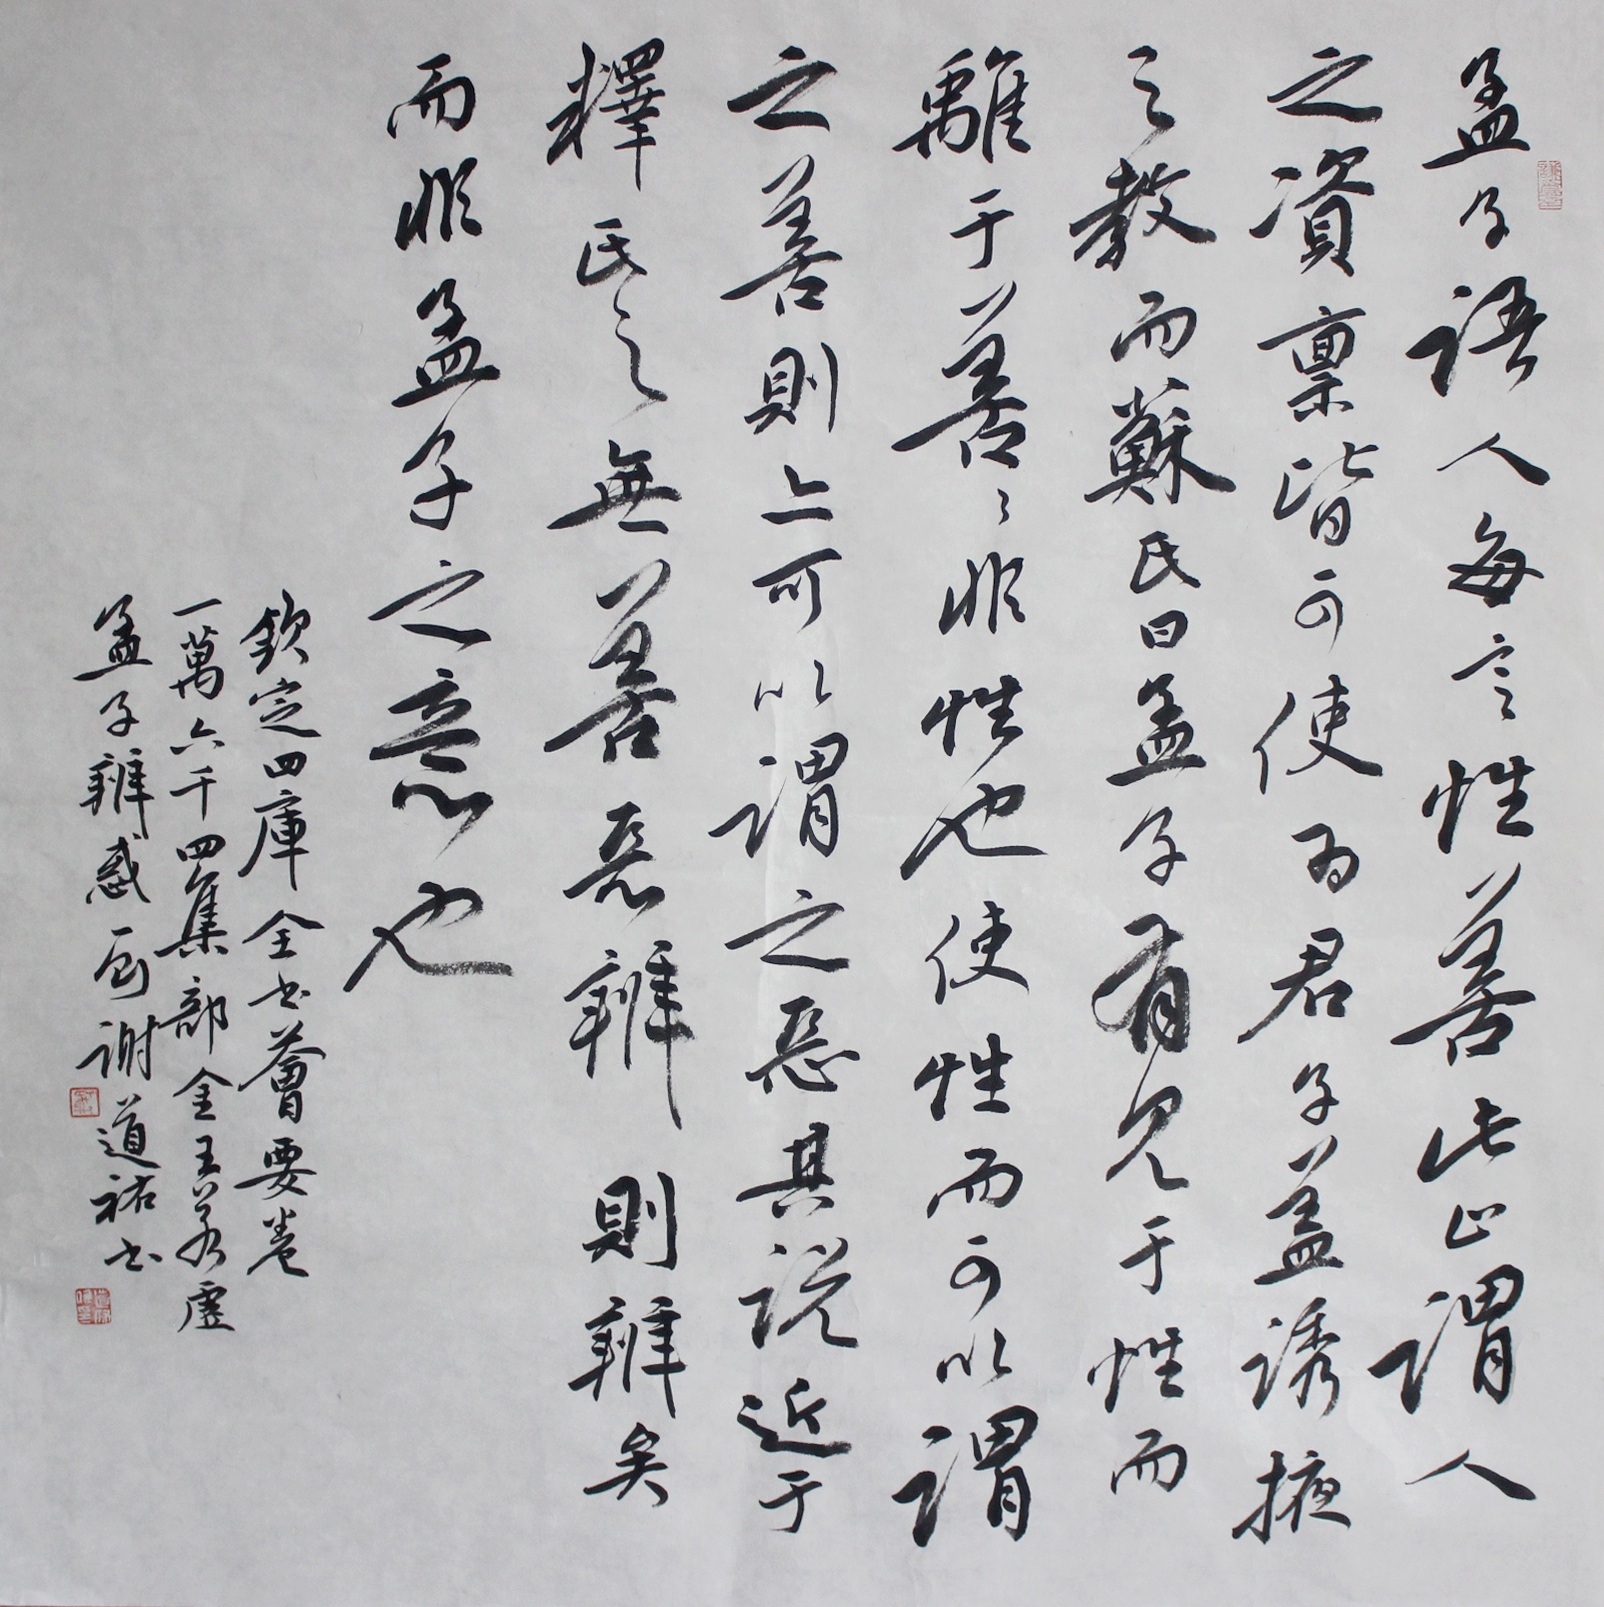 孟子語人每言性善此止謂人
之資稟皆可使為君子蓋誘掖
之教而蘇氏曰孟子有見于性而
離于善善非性也使性而可以謂
之善則亦可以謂之惡其說近于
釋氏之無善惡辨則辨矣
而非孟子之意也
欽定四庫全書薈要卷
一萬六千四集部金王若虛
孟子辨惑句謝道祐書